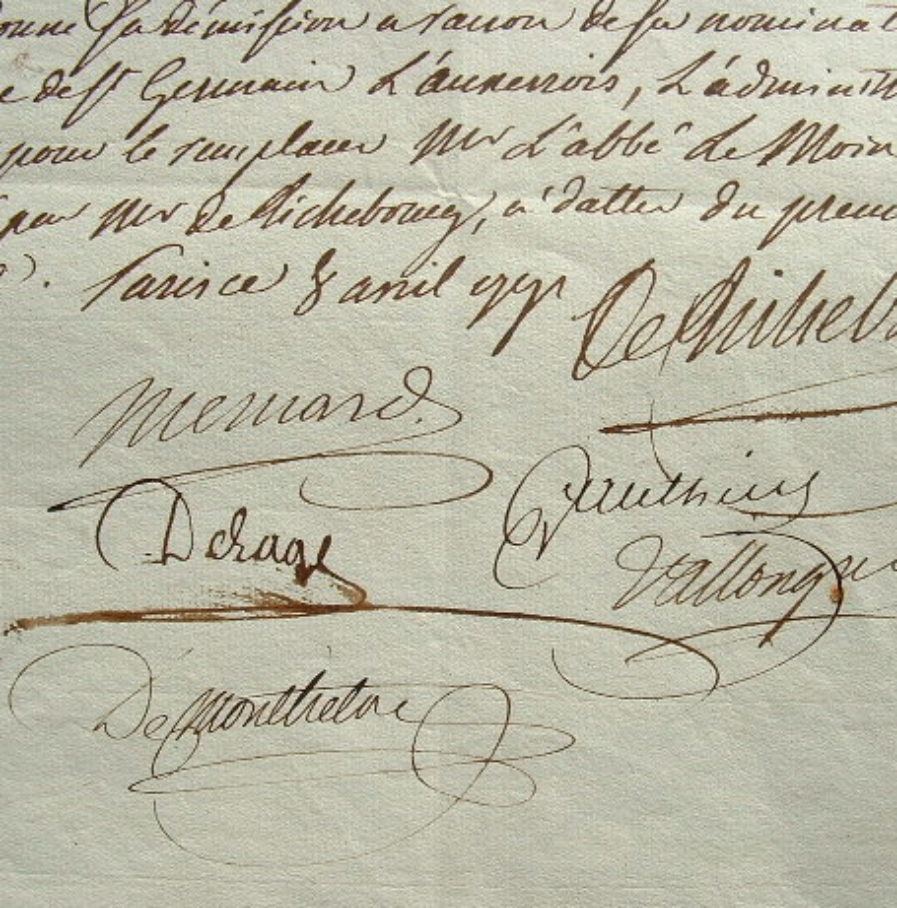 donne Sa démission a raison de sa nominat
e de St Germain L'auxerrois, L'administ
pour le remplacer Mr L'abbé Le Moin
par Mr de Richebourg, a datter du prem
Paris ce 8 avril 1791
De Richeb
Mesnard
Gauthier
Delage
Vallongue
De Montthelon